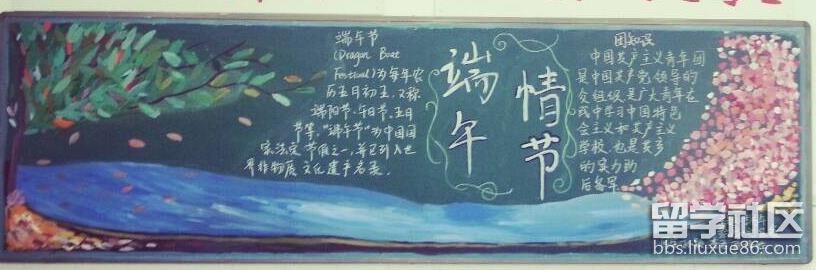 端午节
(Dragon Boat
Festival)为每年农
历五月初五,又称
端阳节、午日节、五月
节等,"端午节"为中国国
家法定节假之一,并已列入世
界非物质文化遗产名录。
端午
情节
团知识
中国共产主义青年团
是中国共产党领导的
先进青年在
实践中学习中国特色
会主义和共产主义
学校,也是
的
后备军
留学社区
bbs.liuxue86.com